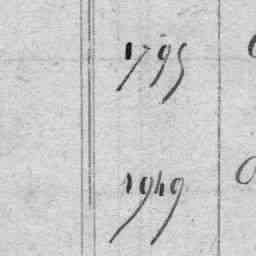 1795
1949